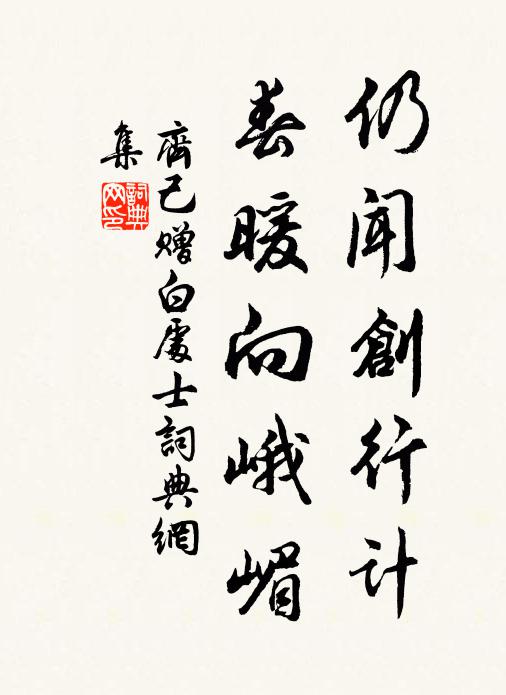 仍闻創行計
春暖向峨嵋
齊己贈白處士詞典網
集
詞典
网印